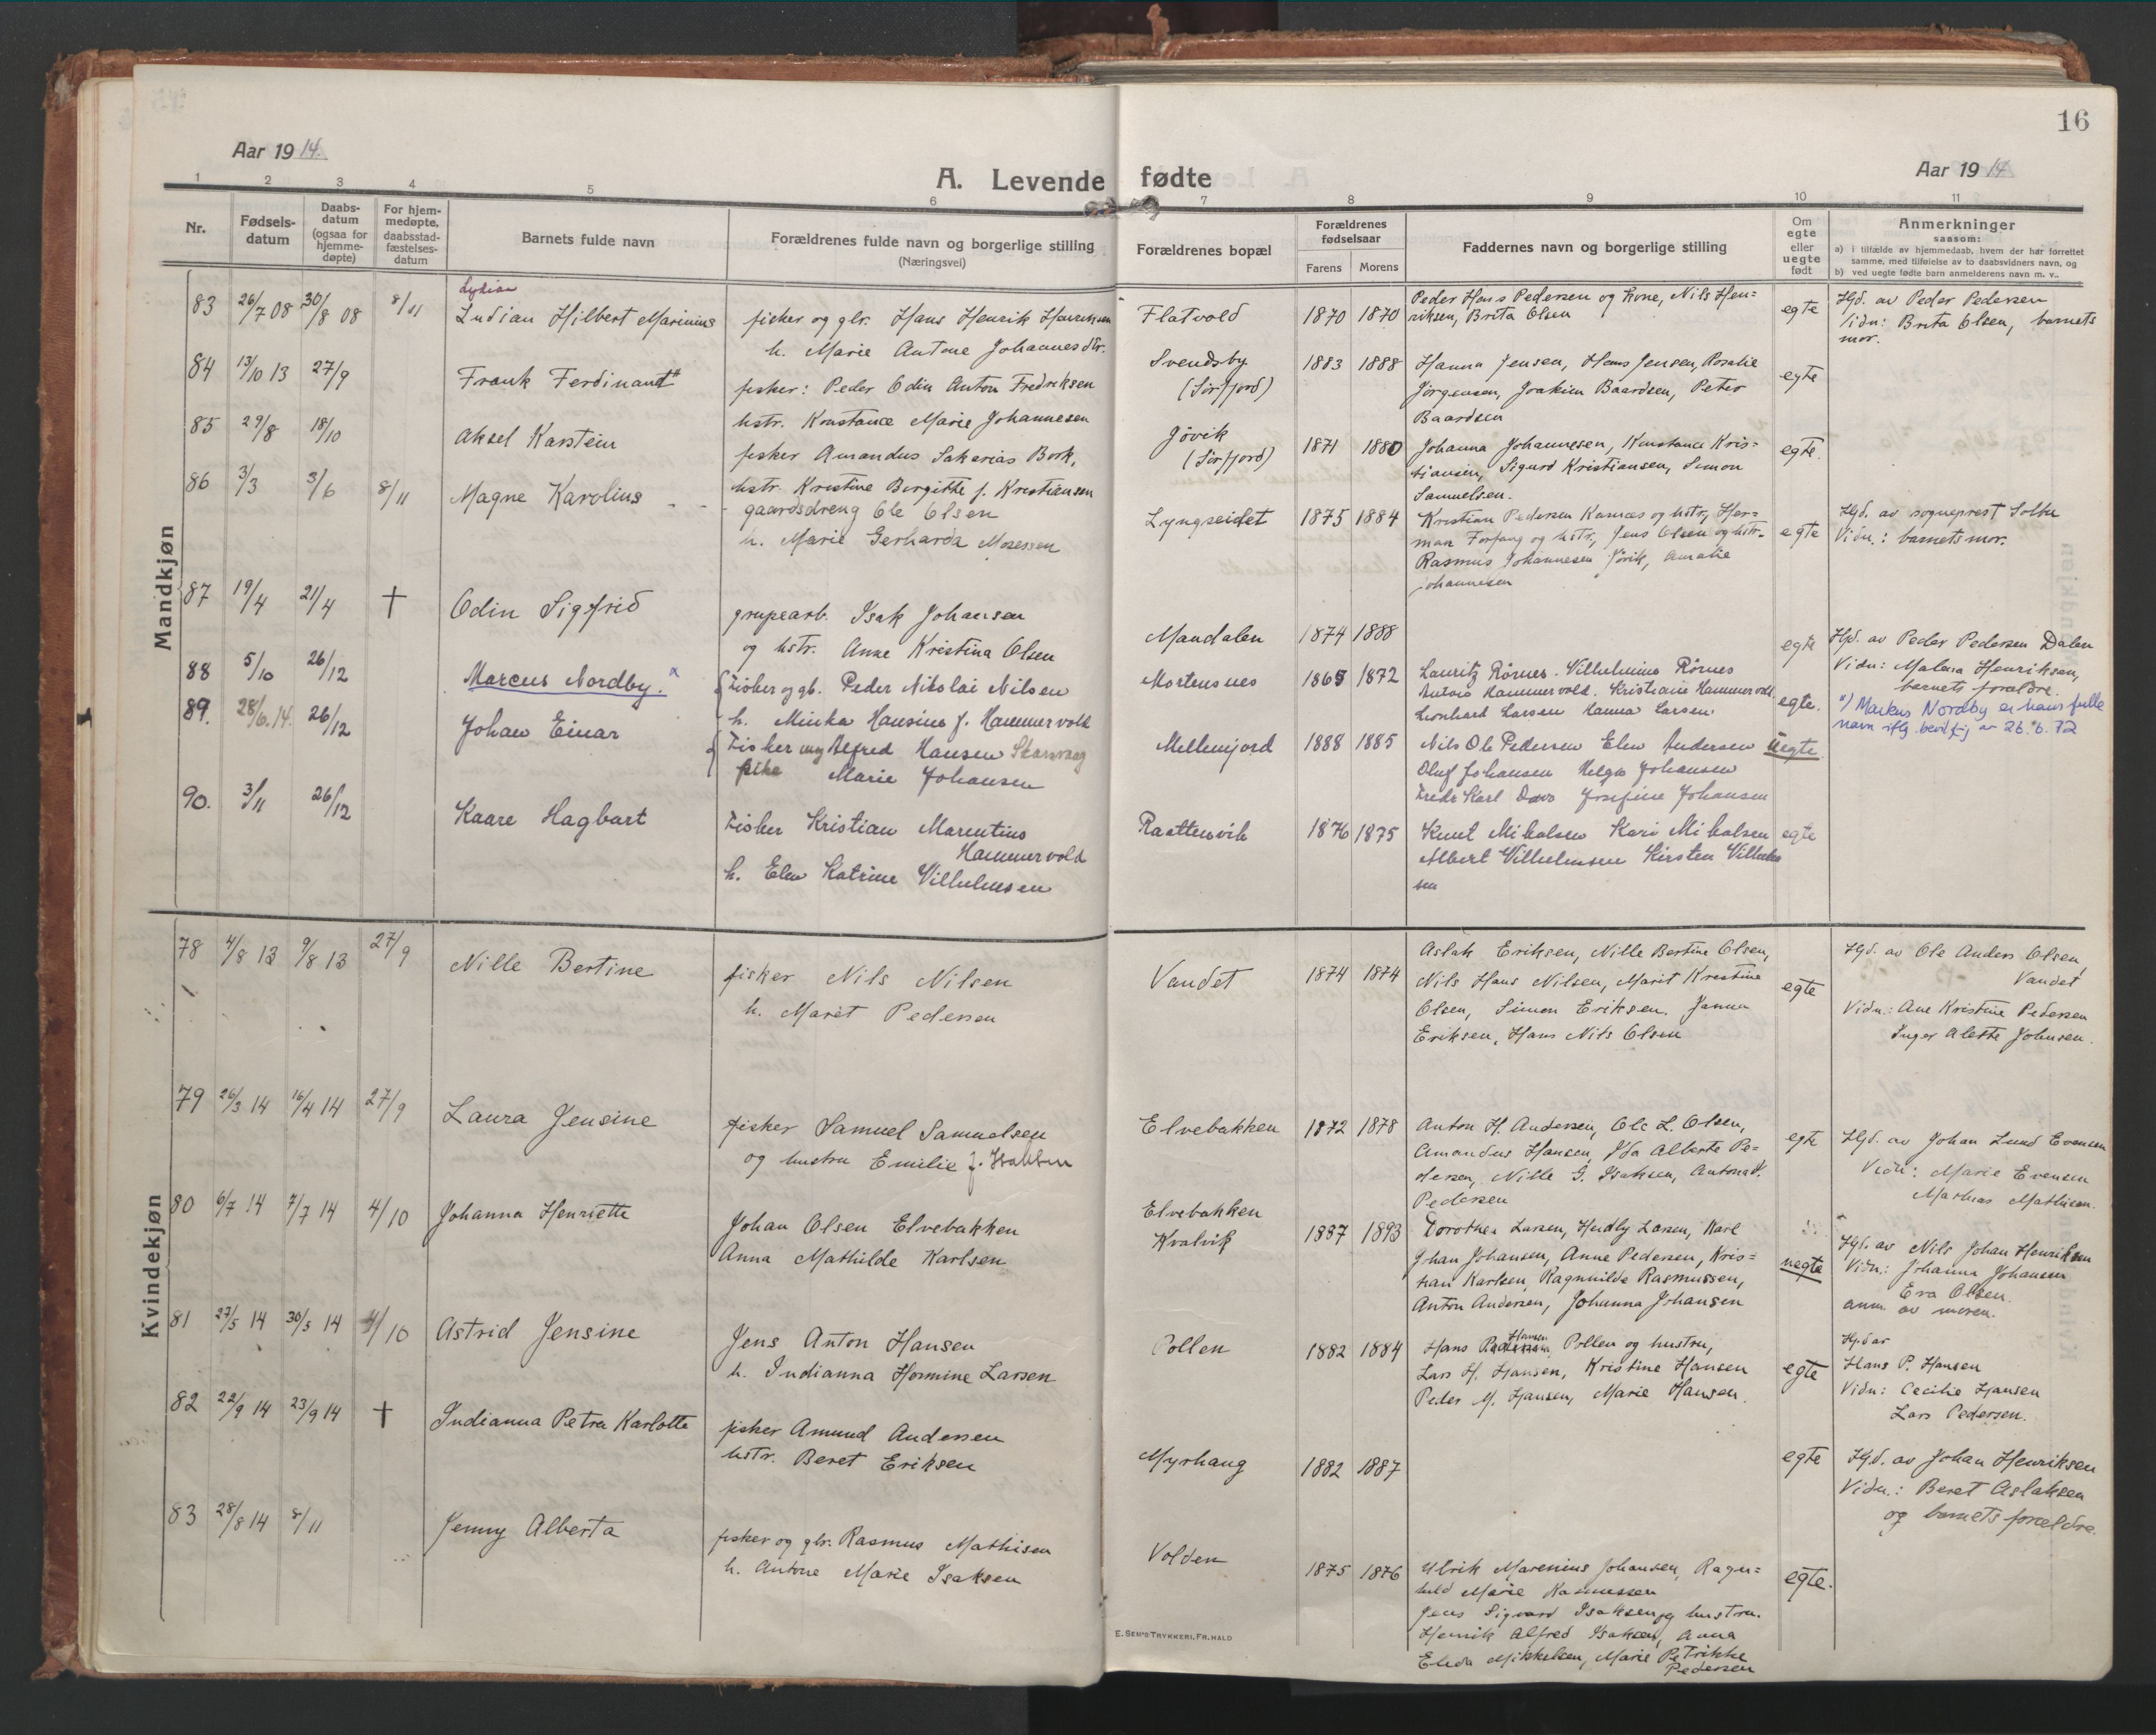 16
Aar 1914.
Aar 1914
A. Levende fødte
1 2 3 4 5 6 7 8 9 10 11
Nr.
Fødsels-
datum
Daabs-
datum
(ogsaa for
hjemme-
døpte)
For hjem-
medøpte,
daabsstad-
fæstelses-
datum
Barnets fulde navn
Forældrenes fulde navn og borgerlige stilling
(Næringsvei)
Forældrenes bopæl
Forældrenes
fødselsaar
Farens
Morens
Faddernes navn og borgerlige stilling
Om
egte
eller
uegte
født
Anmerkninger
saasom:
a) i tilfælde av hjemmedaab, hvem der har forrettet
samme, med tilføielse av to daabsvidners navn, og
b) ved uegte fødte barn anmelderens navn m. v..
Mandkjøn
83 26/7 08 30/8 08 8/11
Lydian
Ludian Hilbert Marinius
fisker og gbr. Hans Henrik Henriksen
h. Marie Antone Johannesdtr.
Flatvold
1870 1870
Peder Hans Pedersen og kone, Nils Hen=
riksen, Brita Olsen
egte
Hjd. av Peder Pedersen
Vidn: Brita Olsen, barnets
mor.
84 13/10 13 27/9
Frank Ferdinant
fisker: Peder Odin Anton Fredriksen
hstr. Konstance Marie Johannesen
Svendsby
(Sørfjord)
1883 1888
Hanna Jensen, Hans Jensen, Rosalie
Jørgensen, Joakim Baardsen, Peter
Baardsen
egte
85 29/8 18/10
Aksel Karstein
fisker Amandus Sakarias Bork,
hstr. Kristine Birgitte f. Kristiansen
Jøvik
(Sørfjord)
1871 1880
Johanna Johannesen, Konstance Kris=
tiansen, Sigurd Kristiansen, Simon
Samuelsen.
egte.
86 3/3 3/6 8/11
Magne Karolius
gaardsdreng Ole Olsen
h. Marie Gerharda Mosessen
Lyngseidet
1875 1884
Kristian Pedersen Kasnæs og hstr, Her-
man Forfang og hstr, Jens Olsen og hstr.
Rasmus Johannesen Jøvik, Amalie
Johannesen
egte
Hjd. av sogneprest Solbu
Vidn.: barnets mor.
87 19/4 21/4 †
Odin Sigfrid
grubearb. Isak Johansen
og hstr. Anne Kristina Olsen
Mandalen
1874 1888
egte
Hjd. av Peder Pedersen Dalen
Vidn: Malena Henriksen,
barnets forældre.
88 5/10 26/12
Marcus Nordby. x
Fisker og gb. Peder Nikolai Nilsen
h. Minka Hansine f. Hammervold
Mortensnes
1865 1872
Lauritz Rörnes. Vilhelmine Rörnes
Antoio Hammervold. Kristiane Hammervold
Leonhard Larsen Hanna Larsen.
egte.
x) Markus Nordby er hans fulle
navn iflg. bevilg av 26.6.72
89. 28/6.14. 26/12
Johan Einar
Fisker ung Alfred Hansen Skarvaag
pike Marie Johansen
Mellemjord
1888 1885
Nils Ole Pedersen Elen Andersen
Oluf Johansen Helga Johansen
Fredr Karl Davs Josefine Johansen
uegte
90. 3/11 26/12
Kaare Hagbart
Fisker Kristian Marentius
Hammervold
h. Elen Katrine Vilhelmsen
Raattenvik
1876 1875
Knut Mikalsen Kari Mikalsen
Albert Vilhelmsen Kirsten Vilhelm
sen
egte
Kvindekjøn
78 4/8 13 9/8 13 27/9
Nille Bertine
fisker Nils Nilsen
h. Maret Pedersen
Vandet
1874 1874
Aslak Eriksen, Nille Bertine Olsen,
Nils Hans Nilsen, Marit Kristine
Olsen, Simon Eriksen. Janna
Eriksen, Hans Nils Olsen
egte
Hjd. av Ole Anders Olsen,
Vandet
Vidn.: Ane Kristine Pedersen
Inger Alette Johnsen.
79 26/3 14 16/4 14 27/9
Laura Jensine
fisker Samuel Samuelsen
og hustru Emilie f. Isaksen
Elvebakken
1872 1878
Anton H. Andersen, Ole L. Olsen,
Amandus Hansen, Ida Alberte Pe=
dersen, Nille G. Isaksen, Antona
Pedersen
egte
Hjd. av Johan Lund Evensen
Vidn: Marie Evensen
Mathias Mathisen.
80 6/7 14 7/7 14 4/10
Johanna Henriette
Johan Olsen Elvebakken
Anna Mathilde Karlsen
Elvebakken
Kvalvik
1887 1893
Dorothea Larsen, Hedly Larsen, Karl
Johan Johansen, Anne Pedersen, Kris=
tian Karlsen, Ragnhilde Rasmussen,
Anton Andersen, Johanna Johansen
uegte
Hjd. av Nils Johan Henriksen
Vidn.: Johanna Johansen
Eva Olsen.
anm. av moren.
81 27/5 14 30/5 14 4/10
Astrid Jensine
Jens Anton Hansen
h. Indianna Hermine Larsen
Pollen
1882 1884
Hansen
Hans Pedersen Pollen og hustru,
Lars H. Hansen, Kristine Hansen
Peder M. Hansen, Marie Hansen.
egte
Hjd av
Hans P. Hansen
Vidn: Cecilie Hansen
Lars Pedersen.
82 22/9 14 23/9 14 †
Indianna Petra Karlotte
fisker Amund Andersen
hstr. Beret Eriksen
Myrhaug
1882 1887
egte
Hjd. av Johan Henriksen
Vidn.: Beret Aslaksen
og barnets forældre.
83 28/8 14 8/11
Jenny Alberta
fisker og gbr. Rasmus Mathisen
h. Antone Marie Isaksen
Volden
1875 1876
Ulrik Marenius Johansen, Ragn=
hild Marie Rasmussen
Jens Sigvard Isaksen og hustru.
Henrik Alfred Isaksen, Anna
Eleda Mikkelsen, Marie Petrikke
Pedersen
egte.
E. SEM'S TRYKKERI, FR.HALD